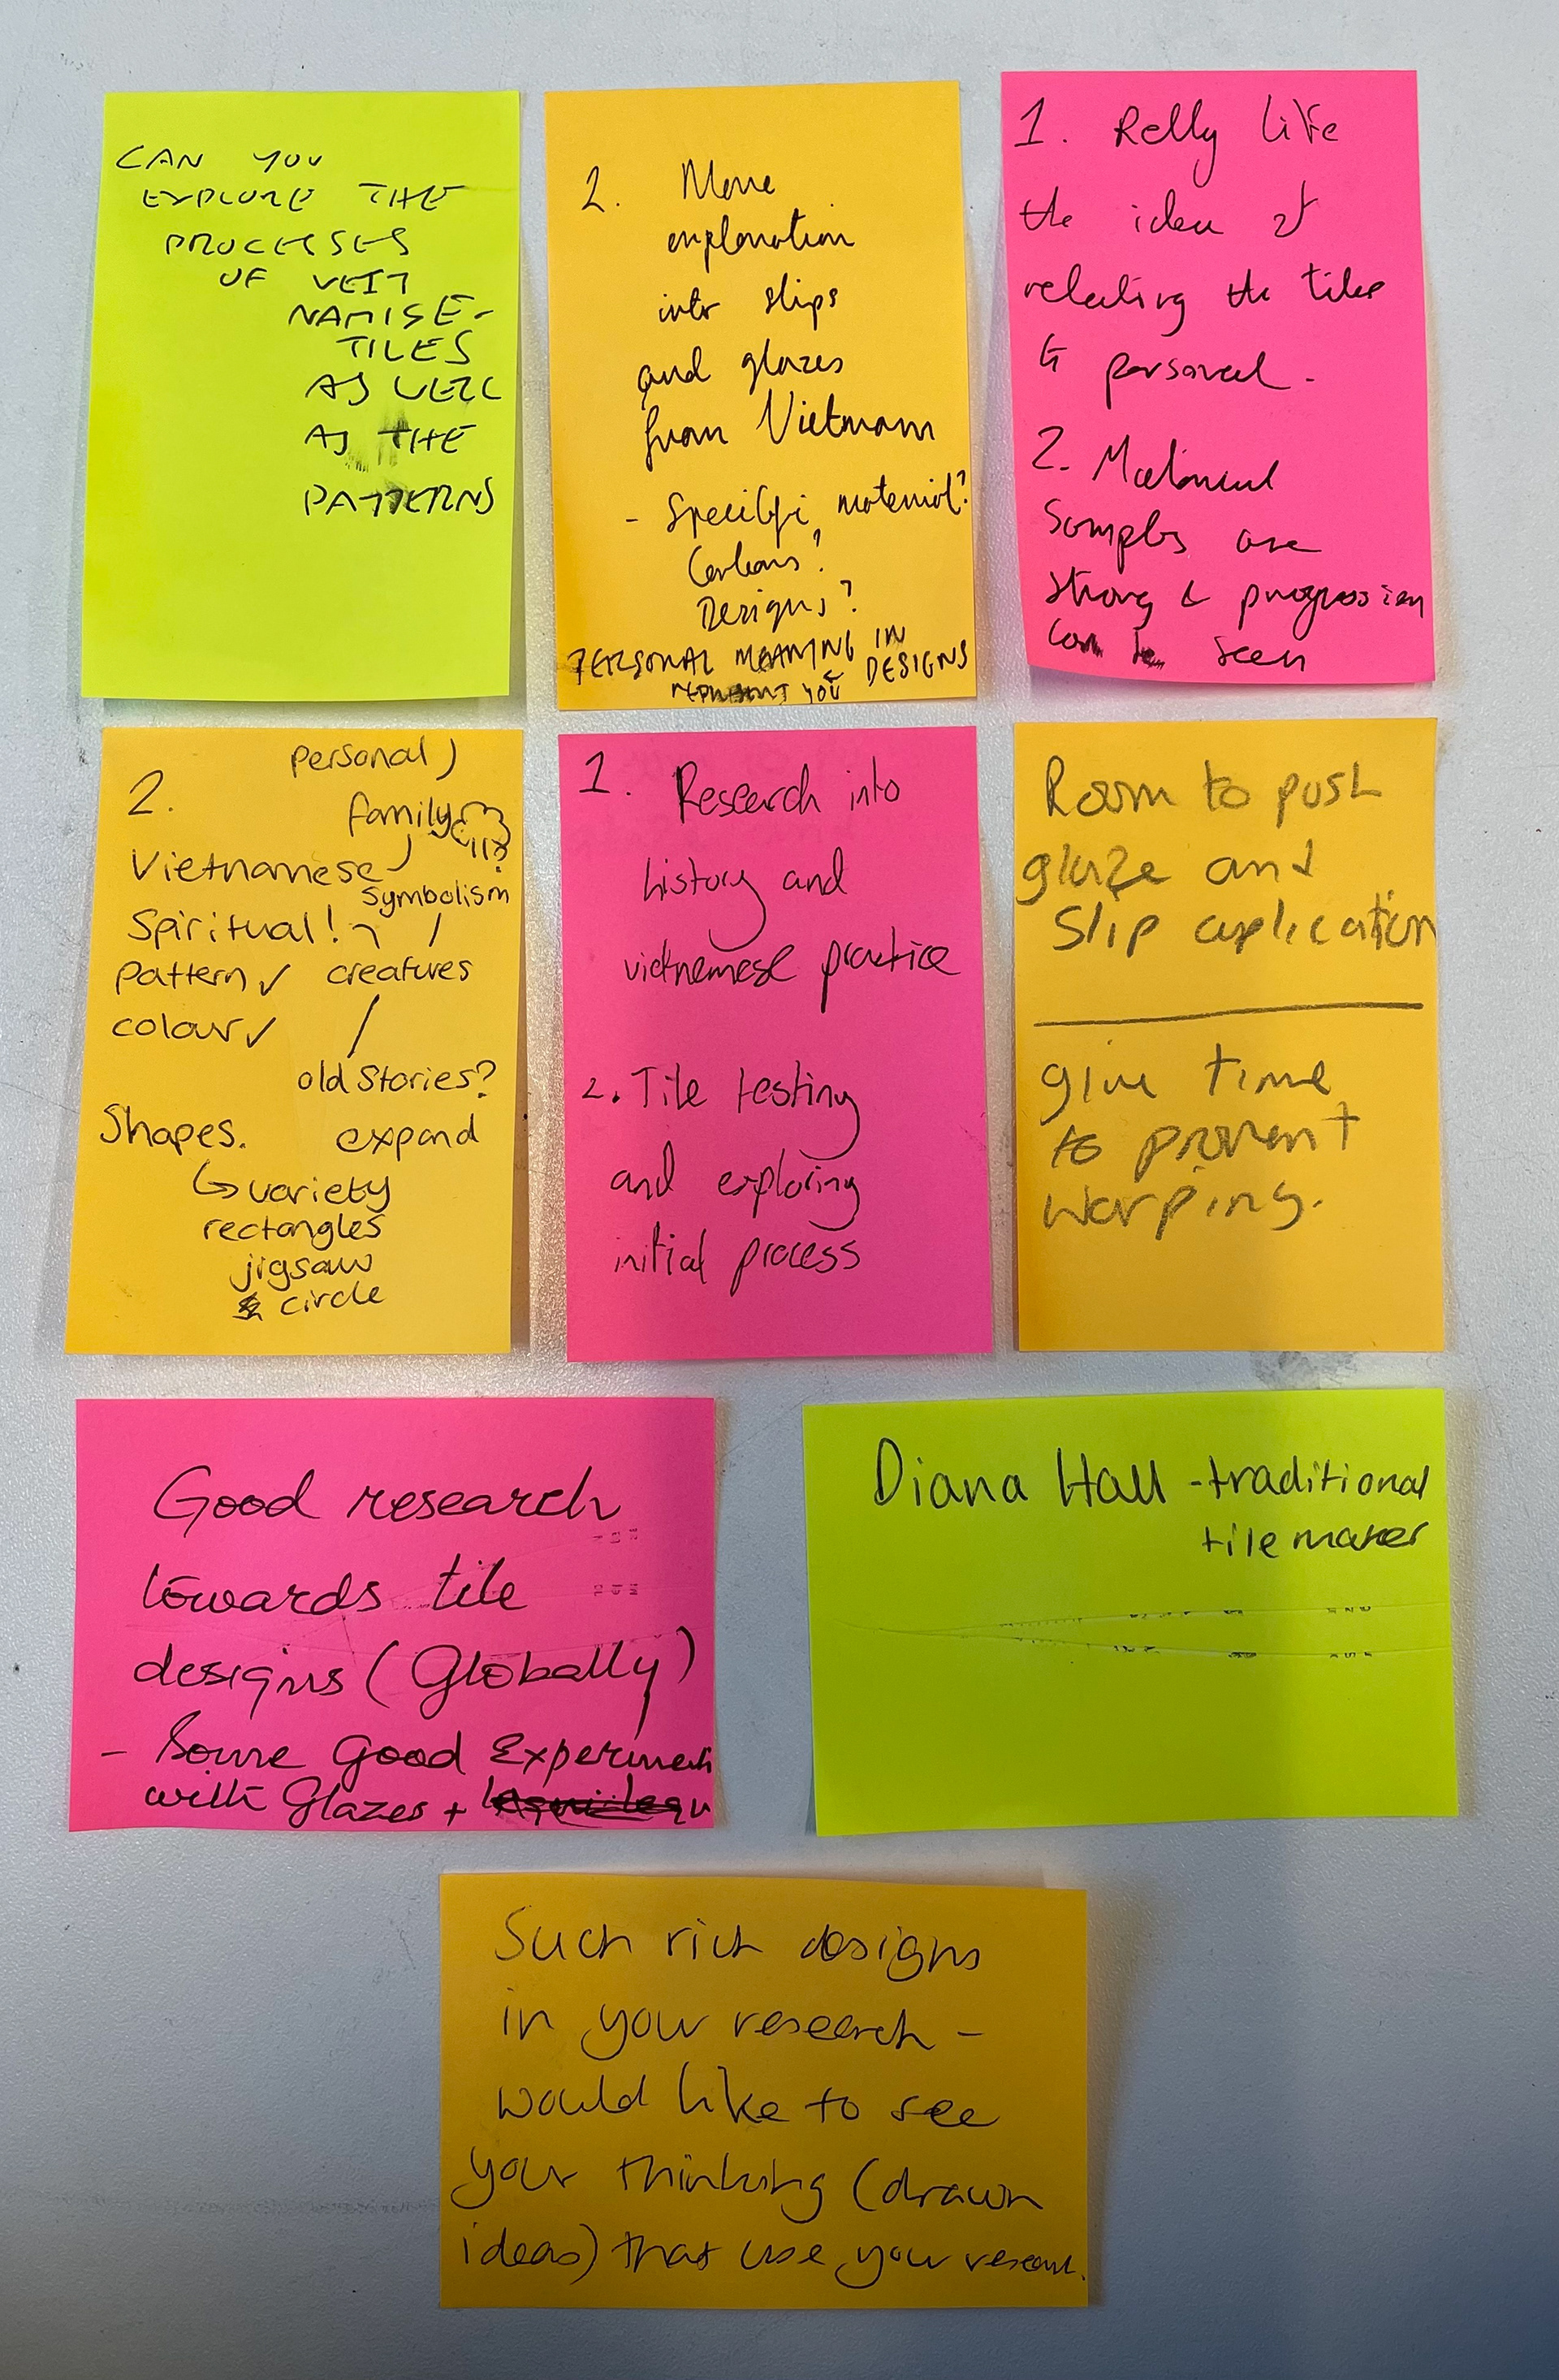 CAN YOU
EXPLORE THE
PROCESSES
OF VEIT
NAMISE-
TILES
AS WELL
AS THE
PATTERNS
2. More
explanation
into slips
and glazes
from Vietnam
- Specific material?
Designs?
PERSONAL MEANING IN
DESIGNS
YOU
1. Relly like
the idea of
relating the tiles
to personal.
2. Material
Samples are
strong & progression
can be seen
2. personal)
family
Vietnamese
Symbolism
Spiritual!
pattern ✓ creatures
colour ✓
old Stories?
Shapes. expand
↳ variety
rectangles
jigsaw
circle
1. Research into
history and
vietnemese practice
2. Tile testing
and exploring
initial process
Room to push
glaze and
Slip application
give time
to prevent
warping.
Good research
towards tile
designs (Globally)
- Some Good Experiments
with Glazes +
Diana Hall - traditional
tile maker
Such rich designs
in your research -
would like to see
your thinking (drawn
ideas) that use your research.